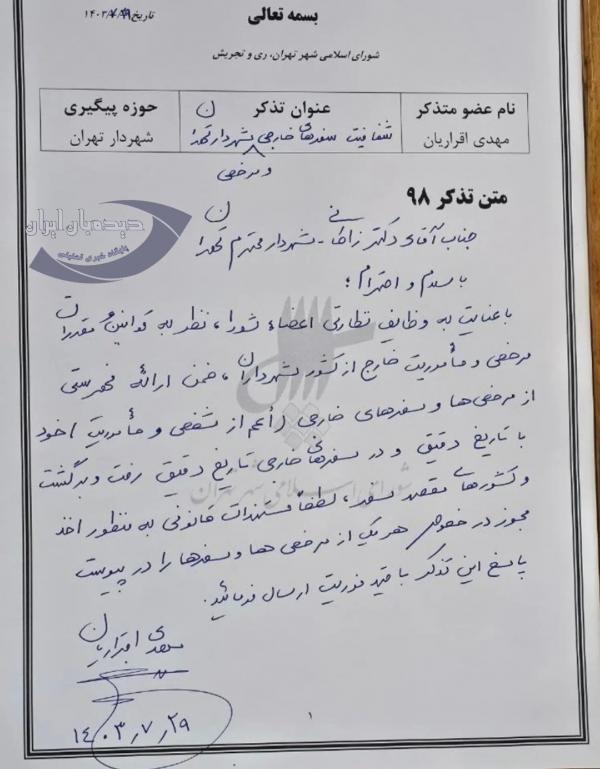 بسمه تعالی
تاریخ ۱۴۰۳/۷/۲۹
شورای اسلامی شهر تهران، ری و تجریش
نام عضو متذکر
عنوان تذکر
حوزه پیگیری
مهدی اقراریان
شفافیت سفرهای خارجی شهردار تهران
و مرخصی
شهردار تهران
متن تذکر ۹۸
دیده‌بان ایران
جناب آقای دکتر زاکانی - شهردار محترم تهران
با سلام و احترام؛
با عنایت به وظایف نظارتی اعضاء شورا، نظر به قوانین و مقررات
مرخصی و مأموریت خارج از کشور شهرداران، ضمن ارائه فهرستی
از مرخصی‌ها و سفرهای خارجی (أعم از شخصی و مأموریت) خود
با تاریخ دقیق و در سفرهای خارجی تاریخ دقیق رفت و برگشت
و کشورهای مقصد سفر، لطفاً مستندات قانونی به منظور اخذ
مجوز در خصوص هر یک از مرخصی ها و سفرها را در پیوست
پاسخ این تذکر با قید فوریت ارسال فرمائید.
شورای اسلامی شهر تهران
مهدی اقراریان
۱۴۰۳،۷،۲۹
۱